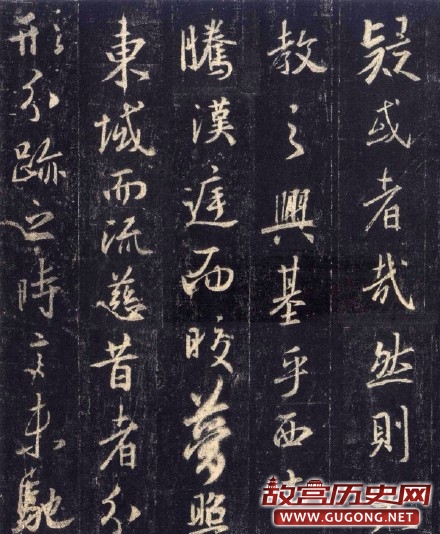 疑或者哉然則
教之興基乎西
騰漢庭而晈夢照
東域而流慈昔者分
形分跡之時言未馳
故宫历史网
WWW.GUGONG.NET